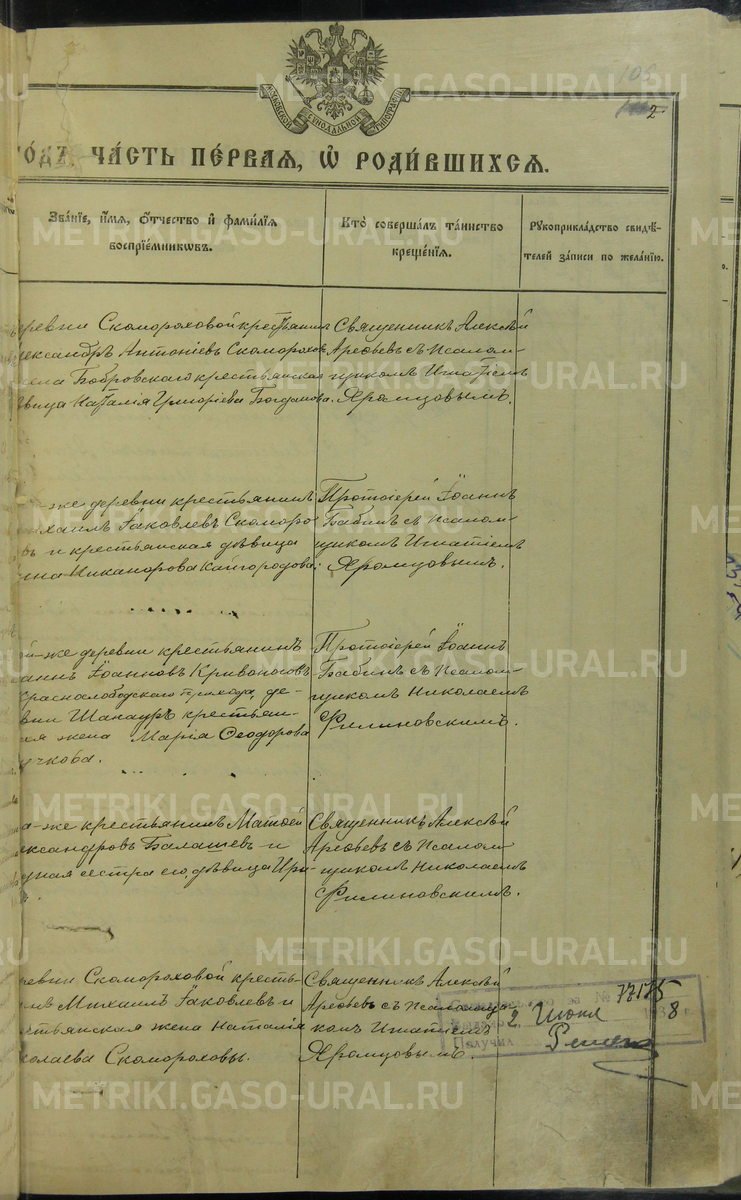 105
2
МОСКОВСКОЙ СѴНОДАЛЬНОЙ ТИПОГРАФІИ
го́дъ, ча́сть пе́рваѧ, ѡ҆ роди́вшихсѧ.
Зва́нїе, и҆́мѧ, ѻ҆́тчество и҆ фами́лїѧ
воспрїе́мникѡвъ.
Кто̀ соверша́лъ та́инство
креще́нїѧ.
Рꙋкоприкла́дство свидѣ́-
телей за́писи по жела́нїю.
деревни Скомороховой крестьянинъ
лександръ Антоніевъ Скомороховъ
села Бобровскаго крестьянская
ѣвица Наталія Григоріева Богданова.
Священникъ Алексѣй
Арефьевъ съ псалом-
щикомъ Игнатіемъ
Хромцовымъ.
-же деревни крестьянинъ
Михаилъ Іаковлевъ Скоморо-
въ и крестьянская дѣвица
Никанорова Кайгородова.
Протоіерей Іоаннъ
Бабинъ съ псалом-
щикомъ Игнатіемъ
Хромцовымъ.
ой-же деревни крестьянинъ
оаннъ Іоанновъ Кривоноговъ
Краснослободскаго прихода, де-
вни Шанауръ крестьян-
кая жена Марія Ѳеодорова
чкова.
Протоіерей Іоаннъ
Бабинъ съ псалом-
щикомъ Николаемъ
Филиновскимъ.
-же крестьянинъ Матѳей
ександровъ Балашевъ и
дная сестра его, дѣвица Ири-
Священникъ Алексѣй
Арефьевъ съ псалом-
щикомъ Николаемъ
Филиновскимъ.
ревни Скомороховой кресть-
инъ Михаилъ Іаковлевъ и
естьянская жена Наталія
колаева Скомороховы.
Священникъ Алексѣй
Арефьевъ съ псаломщи-
комъ Игнатіемъ
Хромцовымъ.
2 Июня
8
Получил
METRIKI.GASO-URAL.RU